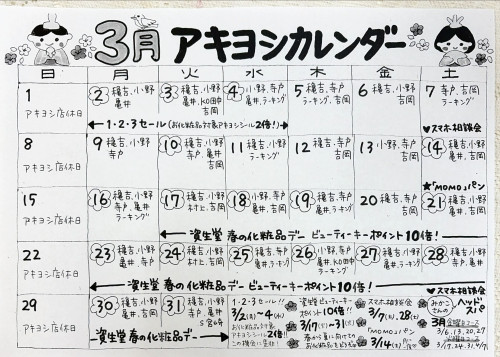 3月 アキヨシカレンダー
日 月 火 水 木 金 土
1 アキヨシ店休日
2 穐吉、小野 亀井
3 穐吉、小野 亀井、KO田中 吉岡
4 小野、寺戸 亀井、吉岡 ラーキング
5 穐吉、寺戸 ラーキング、吉岡
6 穐吉、小野 吉岡
7 寺戸 吉岡
←1・2・3セール(お化粧品ラッキーアキヨシシール2倍!)→
♥スマホ相談会
8 アキヨシ店休日
9 穐吉、小野 寺戸
10 穐吉、小野 寺戸、亀井 吉岡
11 穐吉、小野 ラーキング
12 穐吉、寺戸 吉岡
13 小野、寺戸 吉岡
14 穐吉、亀井 吉岡
★「MOMO」パン
15 アキヨシ店休日
16 穐吉、小野 寺戸、亀井 ラーキング
17 穐吉、小野 村上、吉岡
18 小野、寺戸 亀井、吉岡
19 穐吉、寺戸 ラーキング、吉岡
20 穐吉、寺戸
21 穐吉、小野 亀井、吉岡
←資生堂 春の化粧品デー ビューティーキーポイント10倍!→
22 アキヨシ店休日
23 穐吉、小野 亀井、寺戸
24 穐吉、小野 村上、吉岡
25 穐吉、小野 亀井、吉岡
26 穐吉、小野 ラーキング、吉岡
27 穐吉、小野 寺戸
28 穐吉、寺戸 亀井
←資生堂 春の化粧品デー ビューティーキーポイント10倍!→
♥スマホ相談会
29 アキヨシ店休日
30 穐吉、小野 寺戸、亀井
31 穐吉、寺戸 亀井、吉岡
←資生堂 春の化粧品デー→
1・2・3セール!
3/2(月)〜4(水)
アキヨシシール2倍!
この機会に是非!
資生堂ビューティーキー
ポイント10倍!!
3/17(火)〜31(火)
スマホ相談会
3/7(土)、28(土)
「MOMO」パン
3/14(土)
みかこさんの
ヘッドスパ
3月 金曜日コース
3/6.13.20.27
火曜日コース
3/17.24.31.4/7